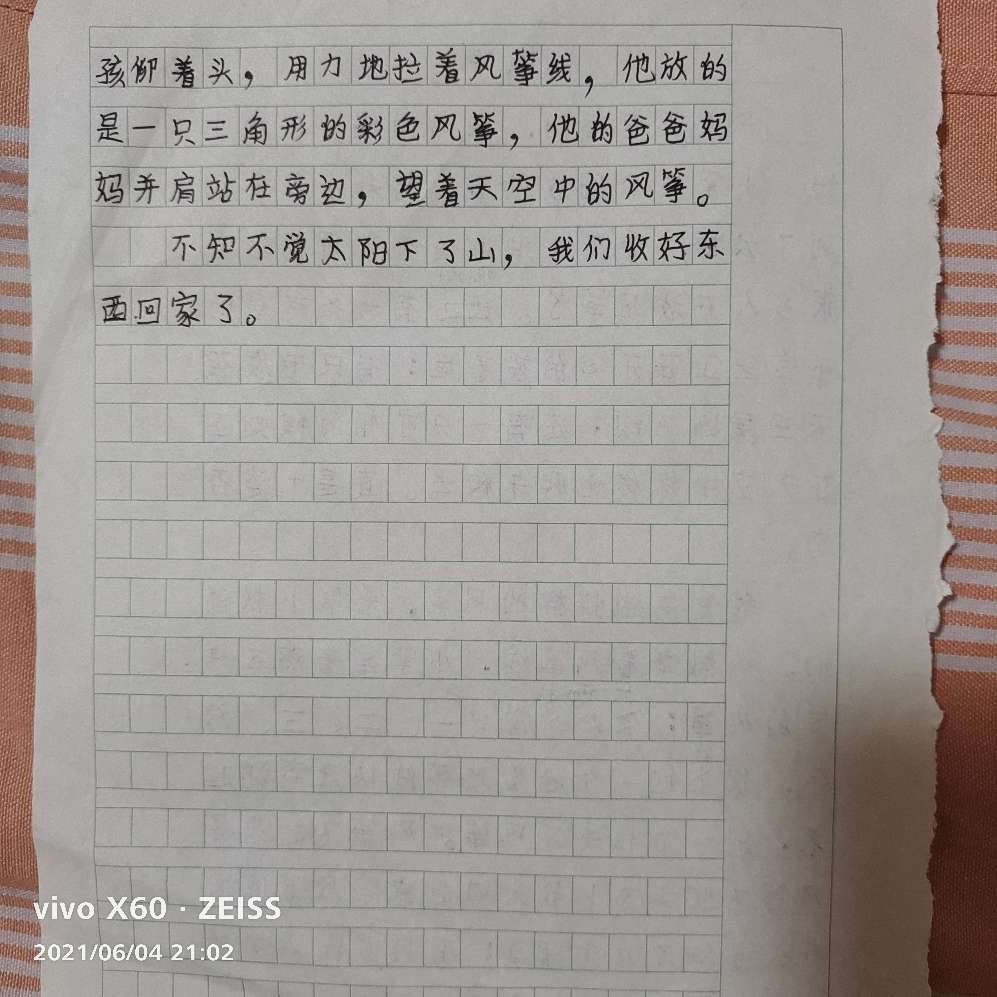 孩仰着头，用力地拉着风筝线，他放的
是一只三角形的彩色风筝，他的爸爸妈
妈并肩站在旁边，望着天空中的风筝。
不知不觉太阳下了山，我们收好东
西回家了。
vivo X60 · ZEISS
2021/06/04 21:02